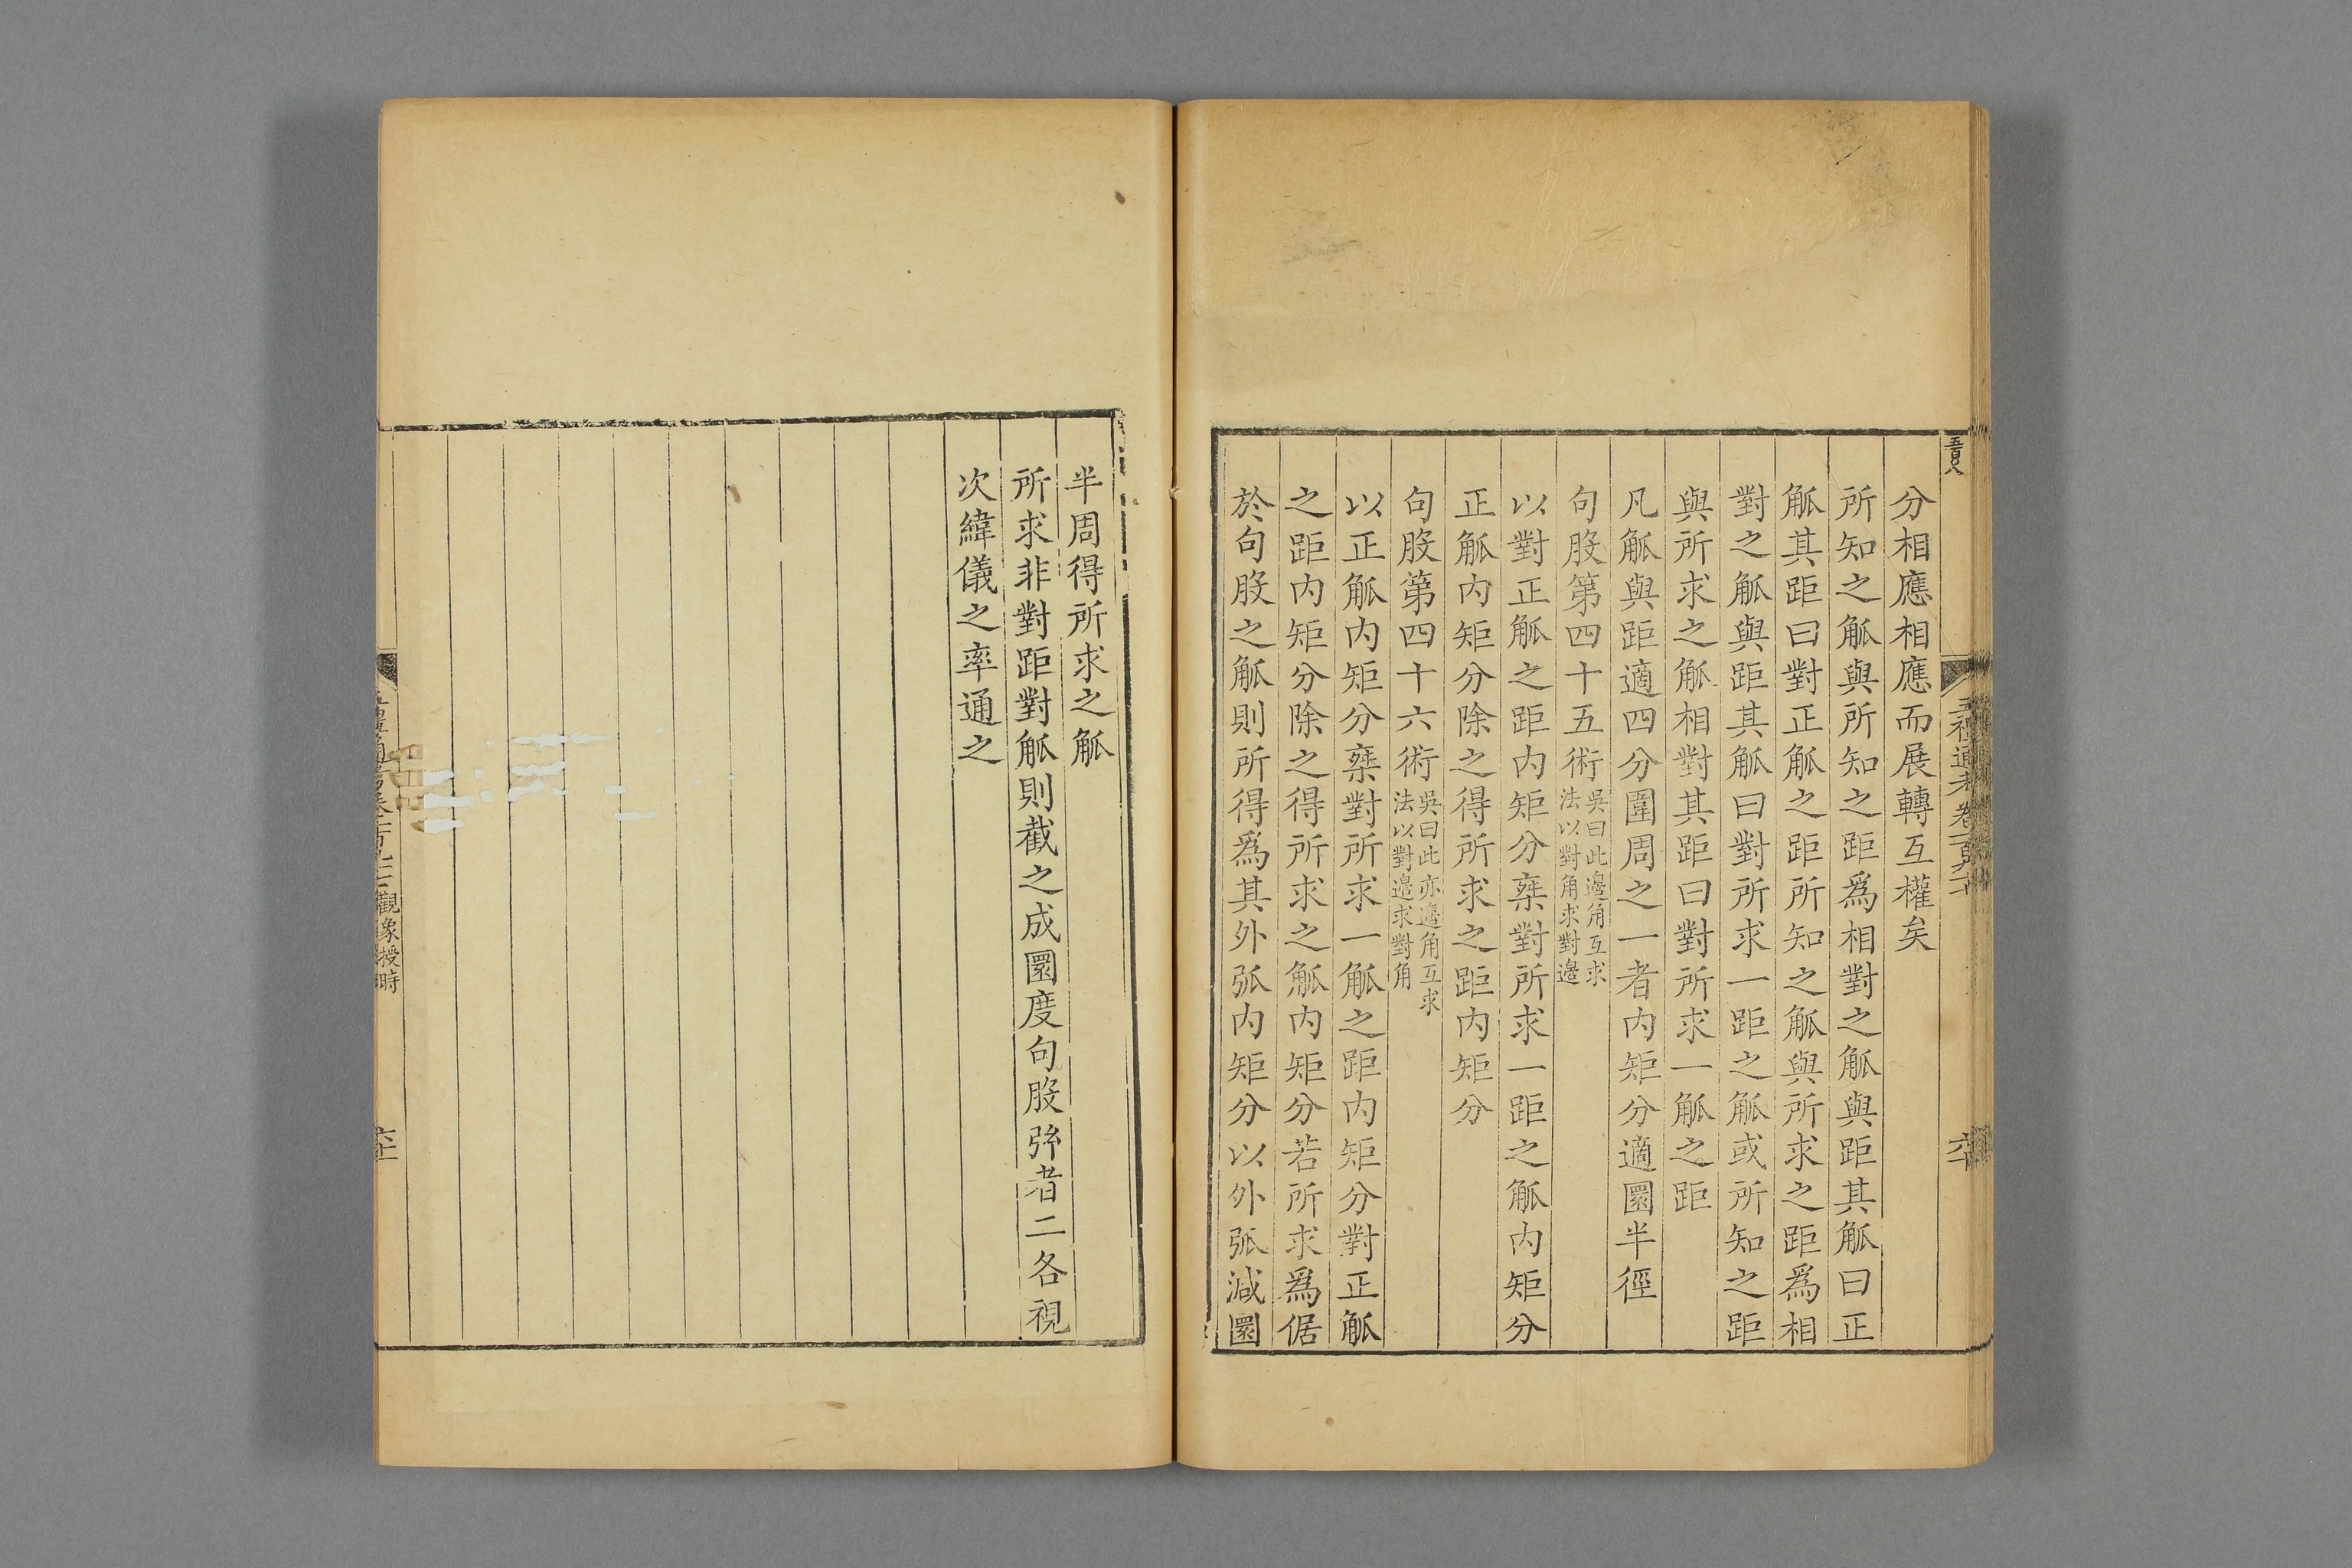 五百八
分相應相應而展轉互權矣
所知之觚與所知之距爲相對之觚與距其觚曰正
觚其距曰對正觚之距所知之觚與所求之距爲相
對之觚與距其觚曰對所求一距之觚或所知之距
與所求之觚相對其距曰對所求一觚之距
凡觚與距適四分圍周之一者内矩分適圜半徑
句股第四十五術吳曰此邊角互求法以對角求對邊
以對正觚之距内矩分乘對所求一距之觚内矩分
正觚内矩分除之得所求之距内矩分
句股第四十六術吳曰此亦邊角互求法以對邊求對角
以正觚内矩分乘對所求一觚之距内矩分對正觚
之距内矩分除之得所求之觚内矩分若所求爲倨
於句股之觚則所得爲其外弧内矩分以外弧減圜
半周得所求之觚
所求非對距對觚則截之成圜度句股弥者二各視
次緯儀之率通之
觀象授時